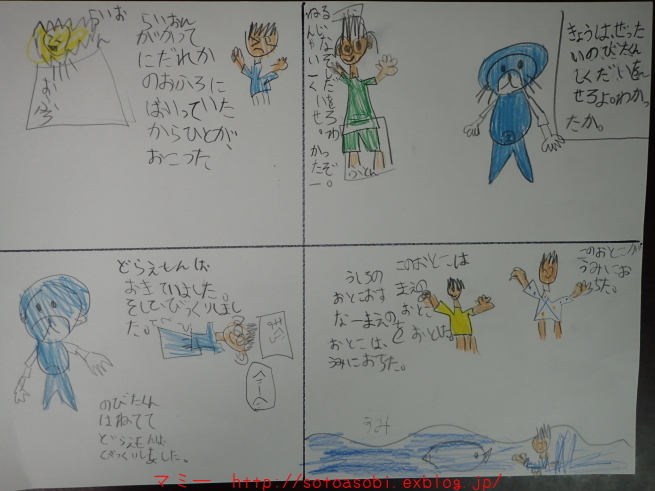 らいおん
おふろ
らいおん
がかって
にだれか
のおふろに
はいっていた
からひとが、
おこった
ふとん
きょうは、ぜった
いのびたくん
しくだいを
せろよ。わかっ
たか。
どらえもんは
おきていました。
そしてびっくりしまし
た。
のびたくん
はねてて
どらえもんは
びっくりしました。
このおとこは
まえの
おとこ
うしろの
おとこおす
なーまえの
おとこは、
うみにおちた。
このおとこが
うみにお
ちた。
うみ
マミー http://sotoasobi.exblog.jp/